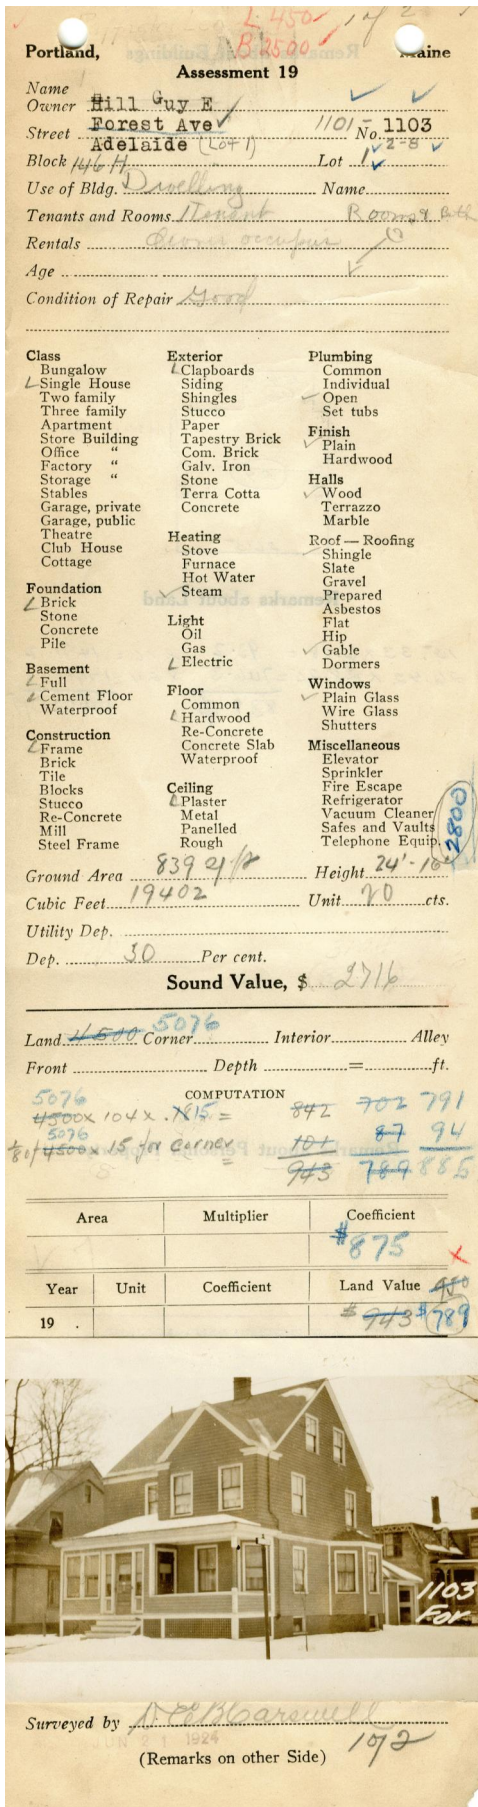 L 450
1 of 2
B 2500
Portland, Maine
Assessment 19
Name
Owner Hill Guy E
Street Forest Ave 1101 - No. 1103
Adelaide (Lot 1) 2-8
Block 146 H Lot 1
Use of Bldg. Dwelling Name
Tenants and Rooms 1 Tenant Rooms 8 Bath
Rentals Owner occupies
Age
Condition of Repair Good
Class
Bungalow
Single House
Two family
Three family
Apartment
Store Building
Office "
Factory "
Storage "
Stables
Garage, private
Garage, public
Theatre
Club House
Cottage
Foundation
Brick
Stone
Concrete
Pile
Basement
Full
Cement Floor
Waterproof
Construction
Frame
Brick
Tile
Blocks
Stucco
Re-Concrete
Mill
Steel Frame
Exterior
Clapboards
Siding
Shingles
Stucco
Paper
Tapestry Brick
Com. Brick
Galv. Iron
Stone
Terra Cotta
Concrete
Heating
Stove
Furnace
Hot Water
Steam
Light
Oil
Gas
Electric
Floor
Common
Hardwood
Re-Concrete
Concrete Slab
Waterproof
Ceiling
Plaster
Metal
Panelled
Rough
Plumbing
Common
Individual
Open
Set tubs
Finish
Plain
Hardwood
Halls
Wood
Terrazzo
Marble
Roof — Roofing
Shingle
Slate
Gravel
Prepared
Asbestos
Flat
Hip
Gable
Dormers
Windows
Plain Glass
Wire Glass
Shutters
Miscellaneous
Elevator
Sprinkler
Fire Escape
Refrigerator
Vacuum Cleaner
Safes and Vaults
Telephone Equip.
2800
Ground Area 839 Height 24'-10"
Cubic Feet 19402 Unit 20 cts.
Utility Dep.
Dep. 30 Per cent.
Sound Value, $ 2716
Land 4500 5076 Corner Interior Alley
Front Depth = ft.
COMPUTATION
5076
4500 x 104 x .1815 = 842 702 791
5076
1/8 of 4500 x 15 for corner = 101 87 94
943 789 885
Area Multiplier Coefficient
$875
Year Unit Coefficient Land Value 950
19 . $943 $789
1103
For
Surveyed by
JUN 21 1924
(Remarks on other Side) 1 of 2